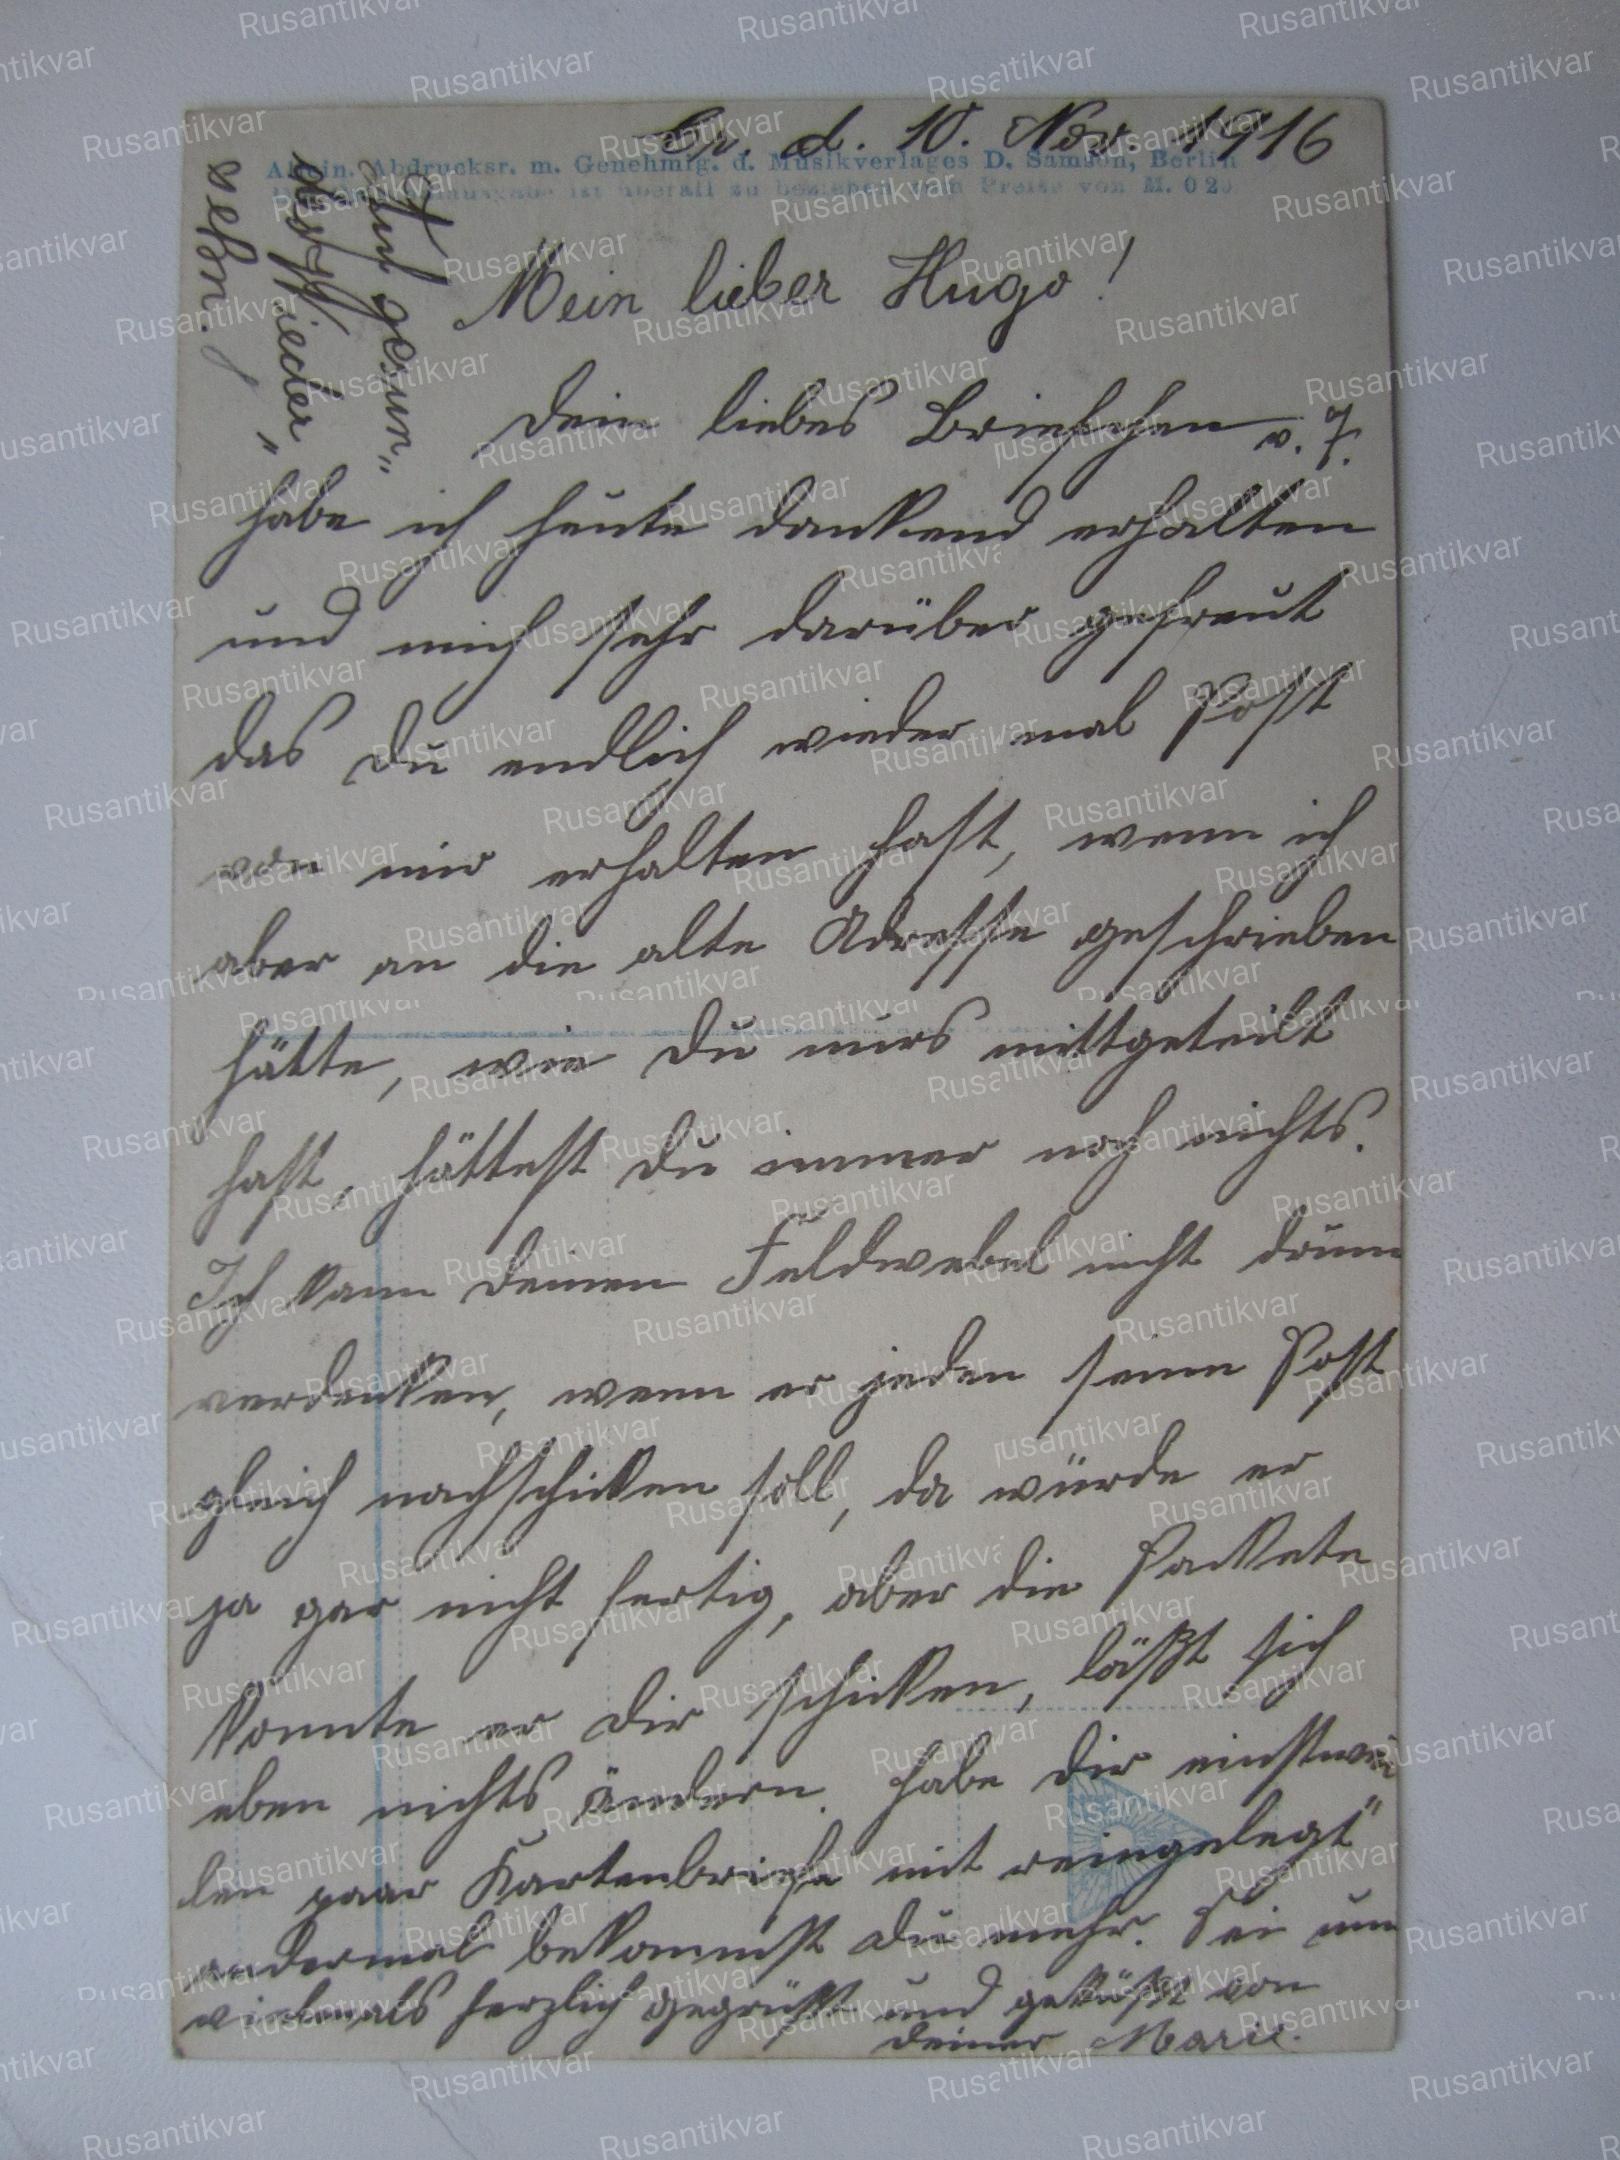 Gr. d. 10. Nov. 1916
Allein. Abdrucksr. m. Genehmig. d. Musikverlages D. Samson, Berlin
ist überall zu beziehen zum Preise von M. 0 20
Mein lieber Hugo!
Dein liebes Briefchen v. 7.
habe ich heute dankend erhalten
und mich sehr darüber gefreut
das Du endlich wieder mal Post
von mir erhalten hast, wenn ich
aber an die alte Adresse geschrieben
hätte, wie Du mirs mittgeteilt
hast, hättest Du immer noch nichts.
Ich kann Deinen Feldwebel nicht drum
verdenken, wenn er jeden seine Post
gleich nachschicken soll, da würde er
ja gar nicht fertig, aber die Packete
konnte er Dir schicken, läßt sich
eben nichts ändern. Habe Dir einstwei
len paar Kartenbriefe mit reingelegt"
andermal bekommst Du mehr. Sei nun
vielmals herzlich gegrüßt und geküßt von
Deiner Marie.
gesun"
Wieder"
sehn.